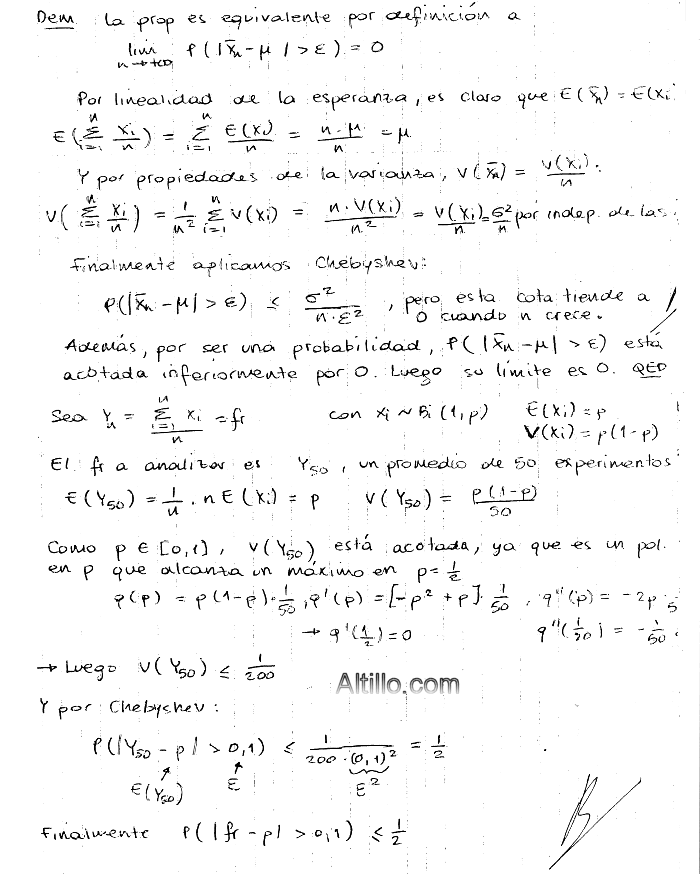 Dem La prop es equivalente por definición a
lim n→+∞ P(|X̄n - μ| > ε) = 0
Por linealidad de la esperanza, es claro que E(X̄n) = E(Xi
E(∑ i=1 n Xi/n) = ∑ i=1 n E(Xi)/n = n·μ/n = μ
Y por propiedades de la varianza, V(X̄n) = V(Xi)/n :
V(∑ i=1 n Xi/n) = 1/n² ∑ i=1 n V(Xi) = n·V(Xi)/n² = V(Xi)/n = σ²/n por indep. de las
Finalmente aplicamos Chebyshev:
P(|X̄n - μ| > ε) ≤ σ²/n·ε² , pero esta cota tiende a
0 cuando n crece.
Además, por ser una probabilidad, P(|X̄n - μ| > ε) está
acotada inferiormente por 0. Luego su límite es 0. QED
Sea Yn = ∑ i=1 n Xi / n = fr con Xi ~ Bi(1,p) E(Xi) = p
V(Xi) = p(1-p)
El fr a analizar es Y50, un promedio de 50 experimentos
E(Y50) = 1/n · n E(Xi) = p V(Y50) = p(1-p)/50
Como p ∈ [0,1], V(Y50) está acotada, ya que es un pol.
en p que alcanza un máximo en p = 1/2
q(p) = p(1-p)·1/50 , q'(p) = [-p² + p]·1/50 , q''(p) = -2p 5
→ q'(1/2) = 0 q''(1/50) = -1/50 .
→ Luego V(Y50) ≤ 1/200
Altillo.com
Y por Chebychev:
P(|Y50 - p| > 0,1) ≤ 1/200·(0,1)² = 1/2
E(Y50) ε ε²
Finalmente P(|fr - p| > 0,1) ≤ 1/2